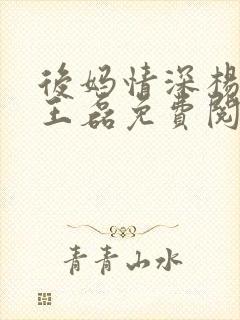 後妈情深楊
王磊免費閱
青青山水